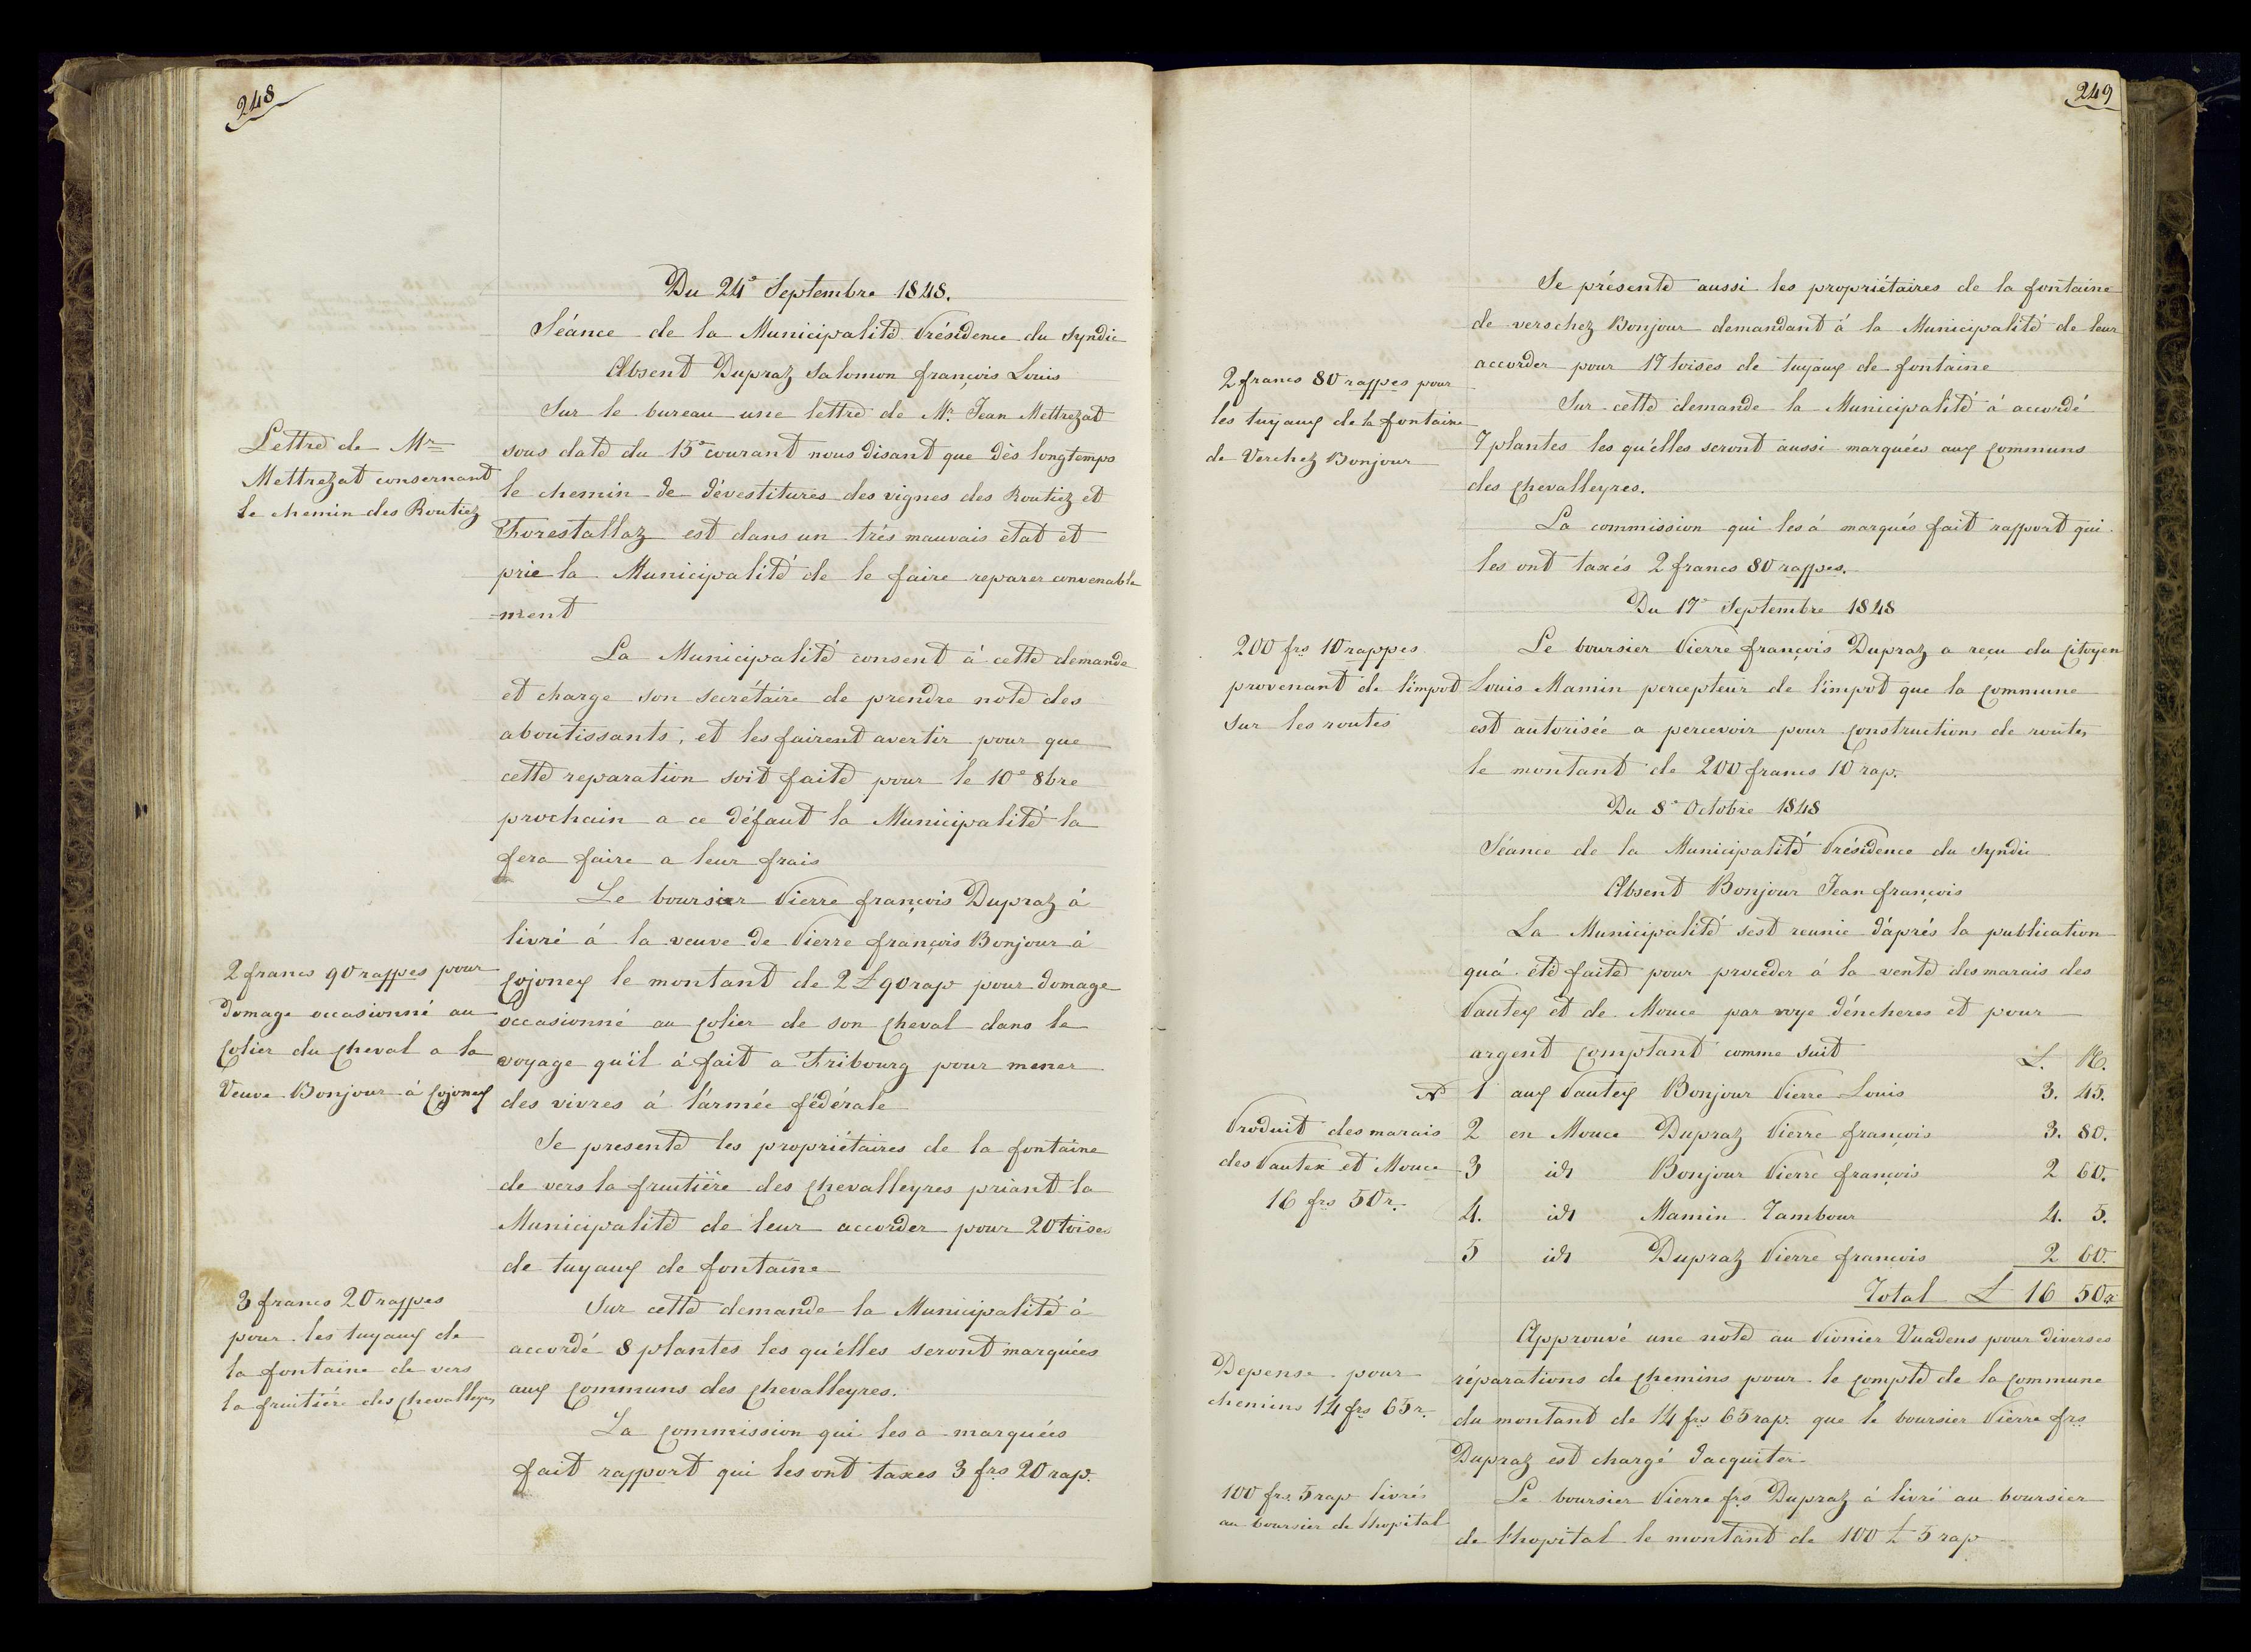 248
Du 24e Septembre 1848.
Séance de la Municipalité Présidence du Syndic
Absent Dupraz Salomon françois Louis
Sur le bureau une lettre de Mr. Jean Mettrezat
Lettre de Mr
sous date du 15e courant nous disant que dès longtemps
Mettrezat consernant
le chemin de dévestitures des vignes des Routiez et
le chemin des Routiez
Forestallaz est dans un trés mauvais état et
prie la Municipalité de le faire reparer convenable
-ment
La Municipalité consent á cette demande
et charge son secrétaire de prendre note des
aboutissants, et les fairent avertir pour que
cette reparation soit faite pour le 10e 8bre
prochain a ce défaut la Municipalité la
fera faire a leur frais
Le boursier Pierre françois Dupraz á
livré á la veuve de Pierre françois Bonjour á
2 francs 90 rappes pour
Cojonex le montant de 2 £ 90 rap pour domage
domage occasionné au
occasionné au Colier de son Cheval dans le
Colier du Cheval a la
voyage qu'il á fait a Fribourg pour mener
Veuve Bonjour á Cojonex
des vivres á l'armée fédérale
Se presente les propriétaires de la fontaine
de vers la fruitière des Chevalleyres priant la
Municipalité de leur accorder pour 20 toises
de tuyaux de fontaine
3 francs 20 rappes
Sur cette demande la Municipalité á
pour les tuyaux de
accordé 8 plantes les qu'elles seront marquées
la fontaine de vers
aux Communs des Chevalleyres.
la fruitiére des Chevalleyres
La Commission qui les a marquées
fait rapport qui les ont taxes 3 frs 20 rap.
249
Se présente aussi les propriétaires de la fontaine
de verschez Bonjour demandant á la Municipalité de leur
accorder pour 17 toises de tuyaux de fontaine
2 francs 80 rappes pour
Sur cette demande la Municipalité á accordé
les tuyaux de la fontaine
7 plantes les qu'elles seront aussi marquées aux Communs
de Verchez Bonjour
des Chevalleyres.
La commission qui les á marqués fait rapport qui
les ont taxés 2 francs 80 rappes.
Du 17e Septembre 1848
200 frs 10 rappes
Le boursier Pierre françois Dupraz a reçu du Citoyen
provenant de l'impot
Louis Mamin percepteur de l'impot que la Commune
Sur les routes
est autorisée a percevoir pour Constructions de routes
le montant de 200 francs 10 rap.
Du 8e Octobre 1848
Séance de la Municipalité Présidence du Syndic
Absent Bonjour Jean françois
La Municipalité s'est reunie d'aprés la publication
qu'á été faite pour procéder á la vente des marais des
Pautex et de Mouce par voye d'encheres et pour
argent Comptant comme suit L. R.
No 1 aux Pautex Bonjour Pierre Louis 3. 45.
Produit des marais
2 en Mouce Dupraz Pierre françois 3. 80.
des Pautex et Mouce
3 id Bonjour Pierre françois 2 60.
16 frs 50 r.
4. id Mamin Tambour 4. 5.
5 id Dupraz Pierre françois 2 60.
Total £ 16 50 r
Approuvé une note au Pionier Vuadens pour diverses
Depense pour
réparations de Chemins pour le Compte de la Commune
chemins 14 frs 65 r.
du montant de 14 frs 65 rap. que le boursier Pierre frs
Dupraz est chargé d'acquiter
100 frs. 5 rap livrés
Le boursier Pierre frs Dupraz á livré au boursier
au boursier de l'hopital
de l'hopital le montant de 100 £ 5 rap